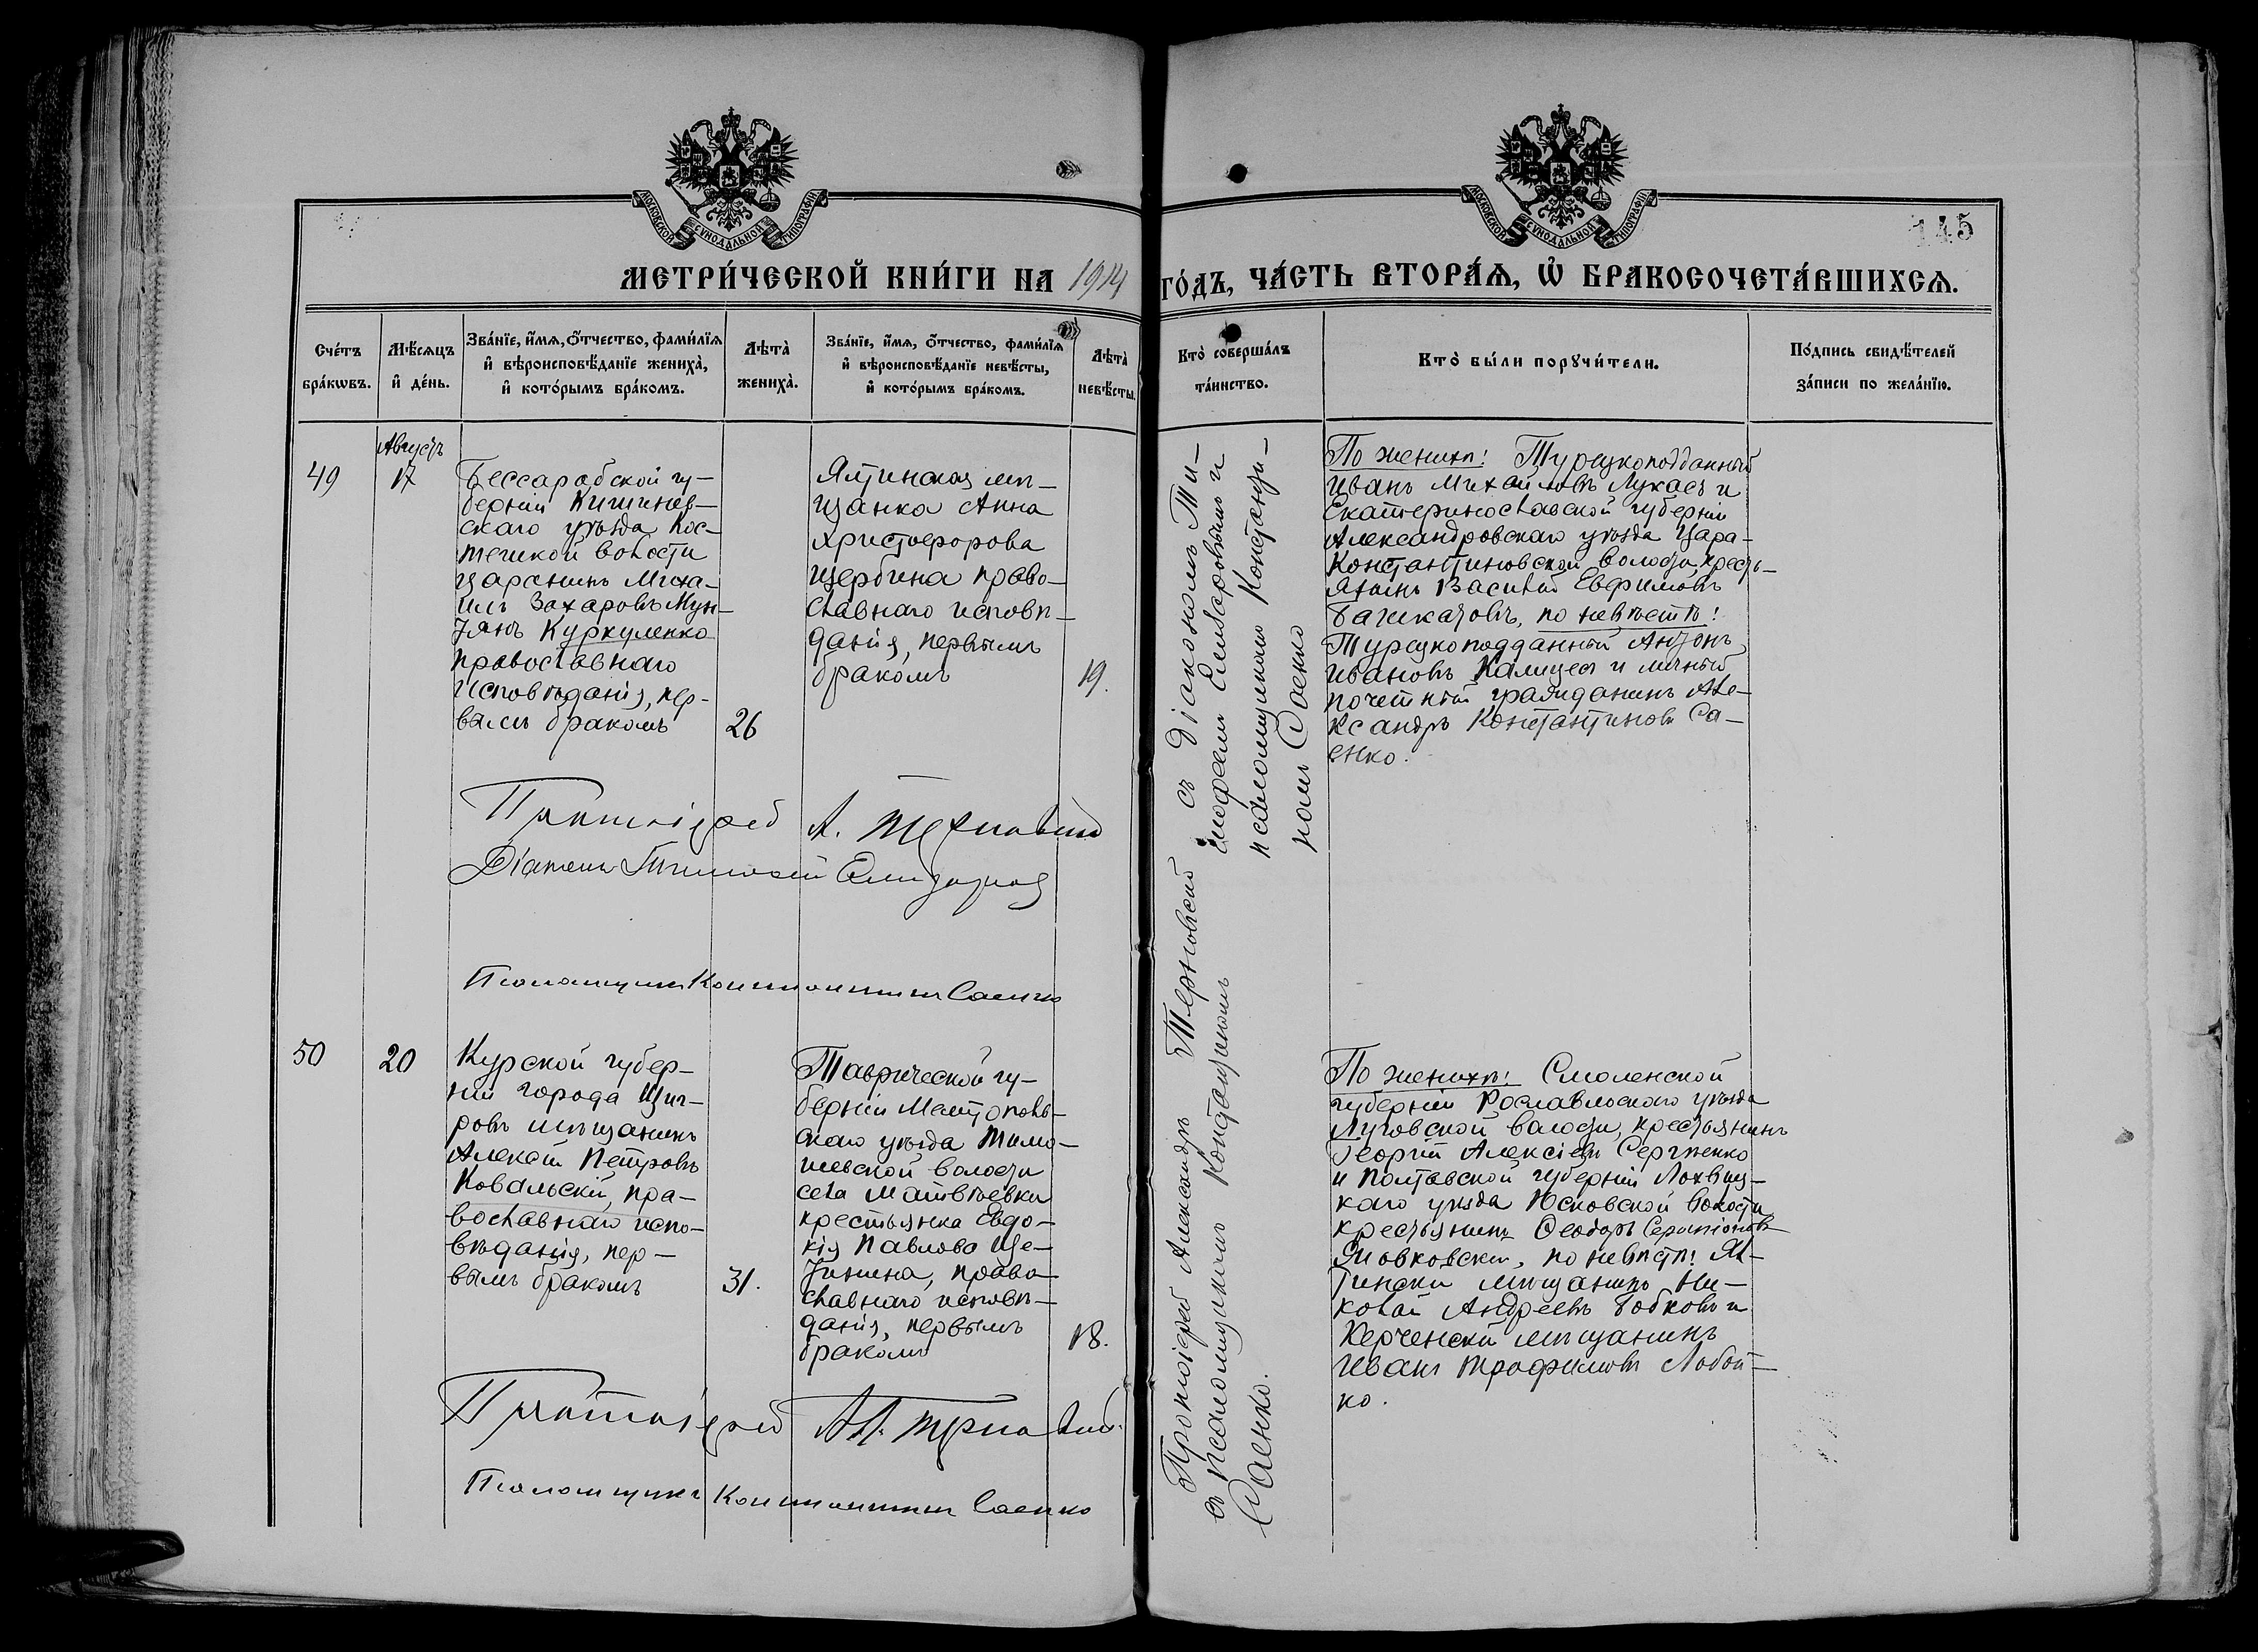 МОСКОВСКОЙ СѴНОДАЛЬНОЙ ТИПОГРАФІИ
МОСКОВСКОЙ СѴНОДАЛЬНОЙ ТИПОГРАФІИ
145
МЕТРИ́ЧЕСКОЙ КНИ́ГИ НА 1914 ГО́ДЪ, ЧА́СТЬ ВТОРА́Ѧ, Ѡ҆ БРАКОСОЧЕТА́ВШИХСѦ.
Сче́тъ
бра́кѡвъ.
Мѣ́сѧцъ
и҆ де́нь.
Зва́нїе, и҆́мѧ, ѻ҆́тчество, фами́лїѧ
и҆ вѣроисповѣ́данїе жениха̀,
и҆ кото́рымъ бра́комъ.
Лѣта̀
жениха̀.
Зва́нїе, и҆́мѧ, ѻ҆́тчество, фами́лїѧ
и҆ вѣроисповѣ́данїе невѣ́сты,
и҆ кото́рымъ бра́комъ.
Лѣта̀
невѣ́сты.
Кто̀ соверша́лъ
та́инство.
Кто̀ бы́ли порꙋчи́тели.
По́дпись свидѣ́телей
за́писи по жела́нїю.
49
Августъ
17
Бессарабской гу-
берніи Кишинев-
скаго уѣзда Кос-
тешской волости
царанинъ Миха-
илъ Захаровъ Мун-
тянъ Куркуленко
православнаго
исповѣданія, пер-
вымъ бракомъ
26
Ялтинская мѣ-
щанка Анна
Христофорова
Щербина право-
славнаго исповѣ-
данія, первымъ
бракомъ
19.
съ Діакономъ Ти-
мофеем Елиазаровымъ и
псаломщикомъ Константи-
номъ Саенко
По женихѣ: Турецкоподданный
Иванъ Михайловъ Лукасъ и
Екатеринославской губерніи
Александровскаго уѣзда Царе-
Константиновской волости крестъ-
янинъ Василий Евфимовъ
Багикатовъ, по невѣстѣ:
Турецкоподданный Антонъ
Ивановъ Калицея и личный
почетный гражданинъ Але-
ксандръ Константиновъ Са-
енко.
Протоіерей А. Терновский
Діаконъ Тимофей
Псаломщикъ Константинъ Саенко
50
20
Курской губер-
ніи города Щиг-
ровъ мѣщанинъ
Алексѣй Петровъ
Ковальскій, пра-
вославнаго испо-
вѣданія, пер-
вымъ бракомъ
31.
Таврической гу-
берніи Мелитополь-
скаго уѣзда Тимо-
шевской волости
села Матвѣевки
крестьянка Евдо-
кія Павлова Ще-
тинина, право-
славнаго исповѣ-
данія, первымъ
бракомъ
18.
Протоіерей Александръ Терновский
съ псаломщикомъ Константиномъ
Саенко.
По женихѣ: Смоленской
губерніи Рославльскаго уѣзда
Луговской волости, крестьянинъ
Георгій Алексѣевъ Сергѣенко
и Полтавской губерніи Лохвиц-
каго уѣзда Юсковской волости
крестьянинъ Ѳеодоръ Серапіоновъ
Яновковский, по невѣстѣ: Ял-
тинский мѣщанинъ Ни-
колай Андреевъ Бобковъ и
Керченский мѣщанинъ
Иванъ Трофимовъ Лобой-
ко.
Протоіерей Ал. Терновский.
Псаломщикъ Константинъ Саенко